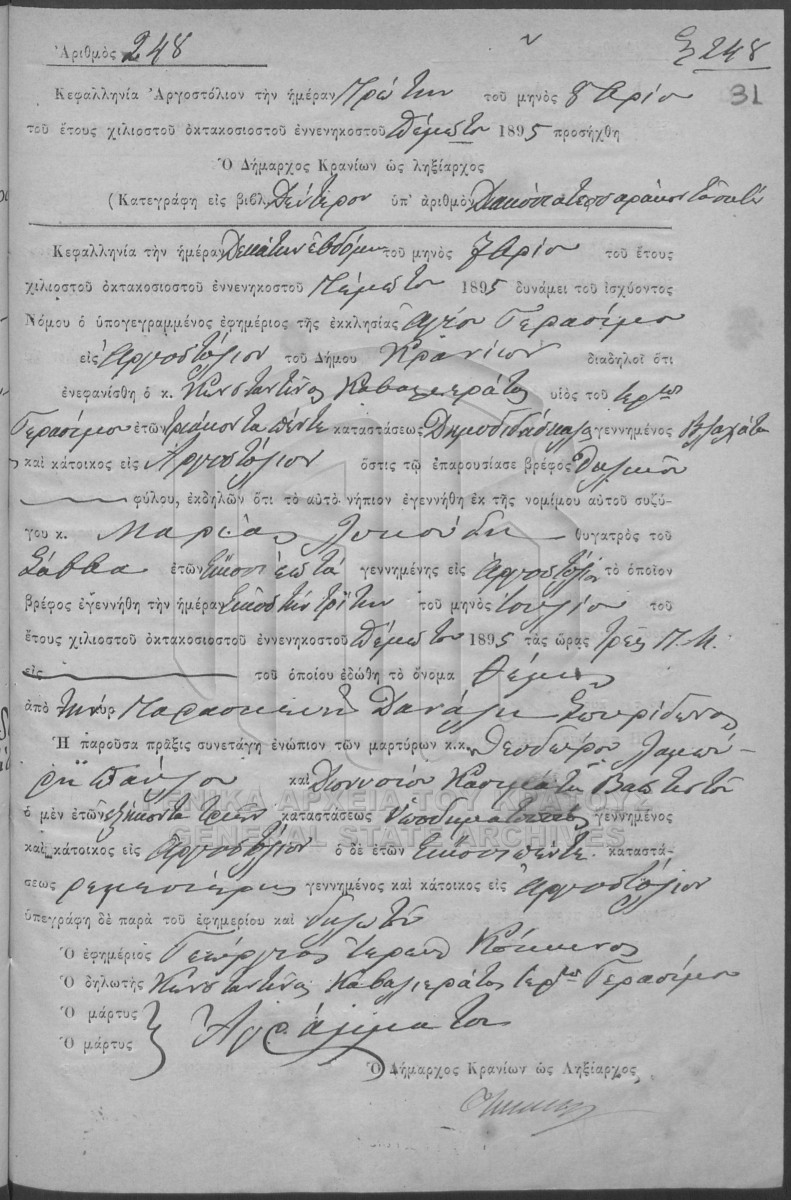 Ἀριθμὸς 248
248
31
Κεφαλληνία Ἀργοστόλιον τὴν ἡμέραν Πρώτην τοῦ μηνὸς 8βρίου
τοῦ ἔτους χιλιοστοῦ ὀκτακοσιοστοῦ ἐννενηκοστοῦ πέμπτου 1895 προσήχθη
Ὁ Δήμαρχος Κρανίων ὡς ληξίαρχος
(Κατεγράφη εἰς βιβλ. Δεύτερον ὑπ' ἀριθμὸν Διακόσια τεσσαράκοντα οκτώ
Κεφαλληνία τὴν ἡμέραν Δεκάτην ἑβδόμην τοῦ μηνὸς 7βρίου τοῦ ἔτους
χιλιοστοῦ ὀκτακοσιοστοῦ ἐννενηκοστοῦ Πέμπτου 1895 δυνάμει τοῦ ἰσχύοντος
Νόμου ὁ ὑπογεγραμμένος ἐφημέριος τῆς ἐκκλησίας Ἁγίου Γερασίμου
εἰς Ἀργοστόλιον τοῦ Δήμου Κρανίων διαδηλοῖ ὅτι
ἐνεφανίσθη ὁ κ. Κωνσταντῖνος Καβαλιεράτος υἱὸς τοῦ ιερέως
Γερασίμου ἐτῶν τριάκοντα πέντε καταστάσεως Δημοδιδάσκαλος γεννημένος Βλαχάτα
καὶ κάτοικος εἰς Ἀργοστόλιον ὅστις τῷ ἐπαρουσίασε βρέφος θηλυκοῦ
φύλου, ἐκδηλῶν ὅτι τὸ αὐτὸ νήπιον ἐγεννήθη ἐκ τῆς νομίμου αὐτοῦ συζύ-
γου κ. Μαρίας Λυκούδη θυγατρὸς τοῦ
Σάββα ἐτῶν εἴκοσι ἑπτά γεννημένης εἰς Ἀργοστόλιον τὸ ὁποῖον
βρέφος ἐγεννήθη τὴν ἡμέραν εἰκοστήν τρίτην τοῦ μηνὸς Ἰουλίου τοῦ
ἔτους χιλιοστοῦ ὀκτακοσιοστοῦ ἐννενηκοστοῦ πέμπτου 1895 τὰς ὥρας τρεῖς Π.Μ.
εἰς τοῦ ὁποίου ἐδώθη τὸ ὄνομα Θέμις
ἀπὸ τὴν κυρ Παρασκευήν Δανάλη Σπυρίδωνος
Ἡ παροῦσα πρᾶξις συνετάγη ἐνώπιον τῶν μαρτύρων κ.κ. Θεοδώρου
Παύλου καὶ Διονυσίου Κασιμάτη Βαπτιστοῦ
ὁ μὲν ἐτῶν ἑξήκοντα τριῶν καταστάσεως ὑποδηματοποιός γεννημένος
καὶ κάτοικος εἰς Ἀργοστόλιον ὁ δὲ ἐτῶν εἴκοσι πέντε καταστά-
σεως ρεμεσιέρης γεννημένος καὶ κάτοικος εἰς Ἀργοστόλιον
ὑπεγράφη δὲ παρὰ τοῦ ἐφημερίου καὶ δηλωτοῦ
Ὁ ἐφημέριος Γεώργιος ἱερεύς Κόκκινος
Ὁ δηλωτὴς Κωνσταντῖνος Καβαλιεράτος ιερέως Γερασίμου
Ὁ μάρτυς
Ὁ μάρτυς Ἀγράμματοι
Ὁ Δήμαρχος Κρανίων ὡς Ληξίαρχος
ΓΕΝΙΚΑ ΑΡΧΕΙΑ ΤΟΥ ΚΡΑΤΟΥΣ
GENERAL STATE ARCHIVES